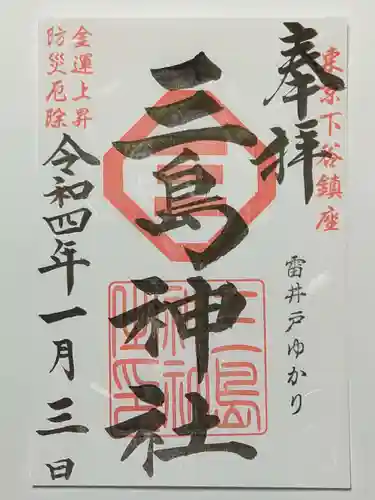 奉拝
東京下谷鎮座
雷井戸ゆかり
三島神社
三島
神社
之印
金運上昇
防災厄除
令和四年一月三日